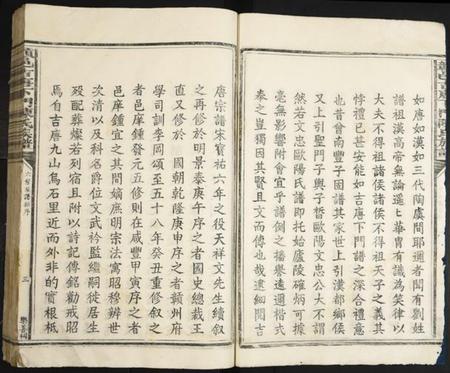 如唐如漢如三代陶虞間耶邇者間有劉姓
譜祖漢高帝無論遙遙華冑有識為笑律以
大夫不得祖諸侯諸侯不得祖天子之義其
悖禮已甚安能如吉唐下門譜之深合禮意
也昔曾南豐子固譜其家世上引漢都鄉侯
又上引聖門子與子晳歐陽文忠公大不謂
然若文忠歐陽氏譜即托始廬陵確炳可據
斯時附和者會宜乎譜倒之播譽遠邇楷式
泰之豈獨因其賢且文而傳也哉逮細閱吉
唐宗譜宋寶祐六年之役天祥文先生續叙
之再修於明景泰庚午序之者國史總裁王
直又修於 國朝乾隆庚申序之者贛州府
學司訓李岡頌至五十八年癸丑重修叙之
邑庠鍾發元五修則在咸豐甲寅序之者
邑庠鍾宜之其間嫡庶明宗法寓昭穆辨世
次清以及科名爵位文武衿監繼嗣徙居生
歿配葬燦若列宿且附以詩記傳銘勸戒昭
焉伯吉唐九山烏石里近而外非的實根柢
六修族譜序
三